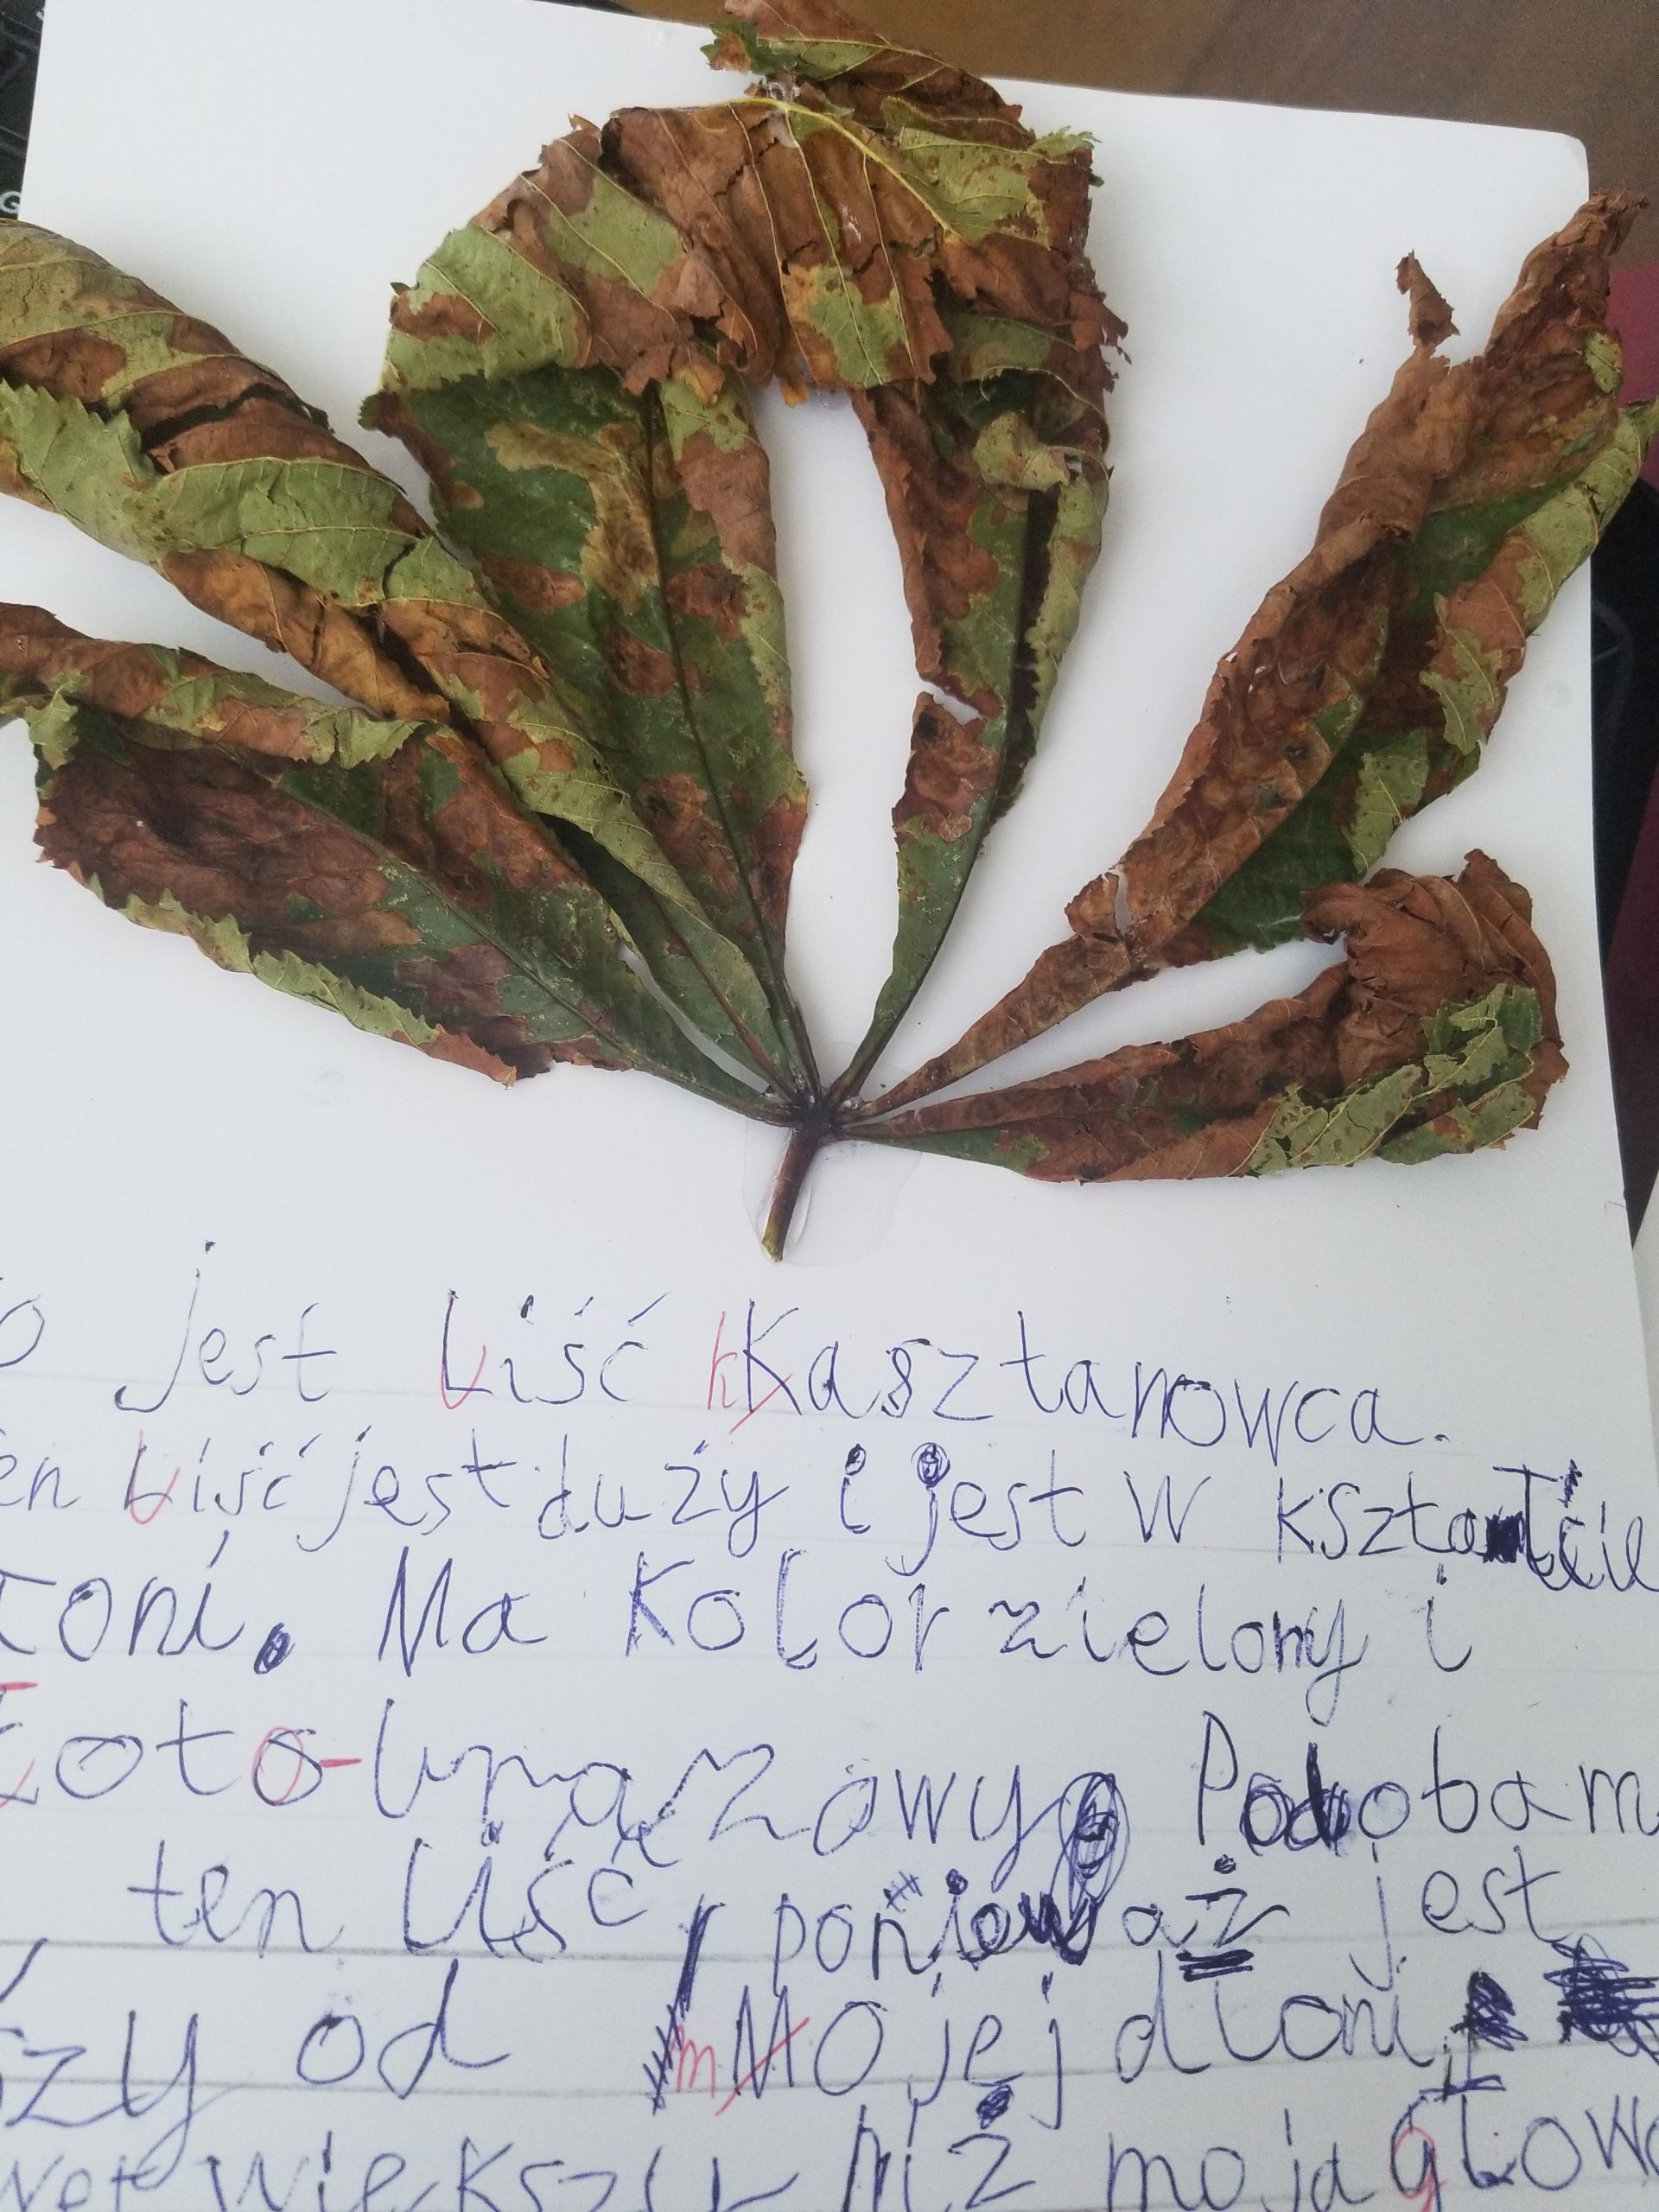 o jest Liść kKasztanowca.
en Liść jest duży i jest w kształcie
łoni. Ma Kolor zielony i
łoto-brązowy. Podoba m
ten liść, ponieważ jest
szy od mMojej dłoni,
wet większy niż moja głowa